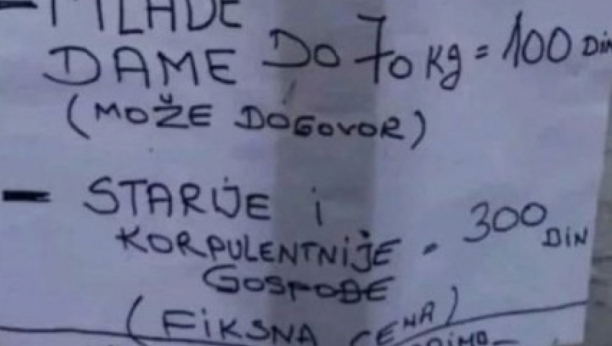 - MLADE
DAME DO 70 kg = 100 DIN
(MOŽE DOGOVOR)
- STARIJE i
KORPULENTNiJE - 300 DIN
GOSPOĐE
(FiKSNA CENA)